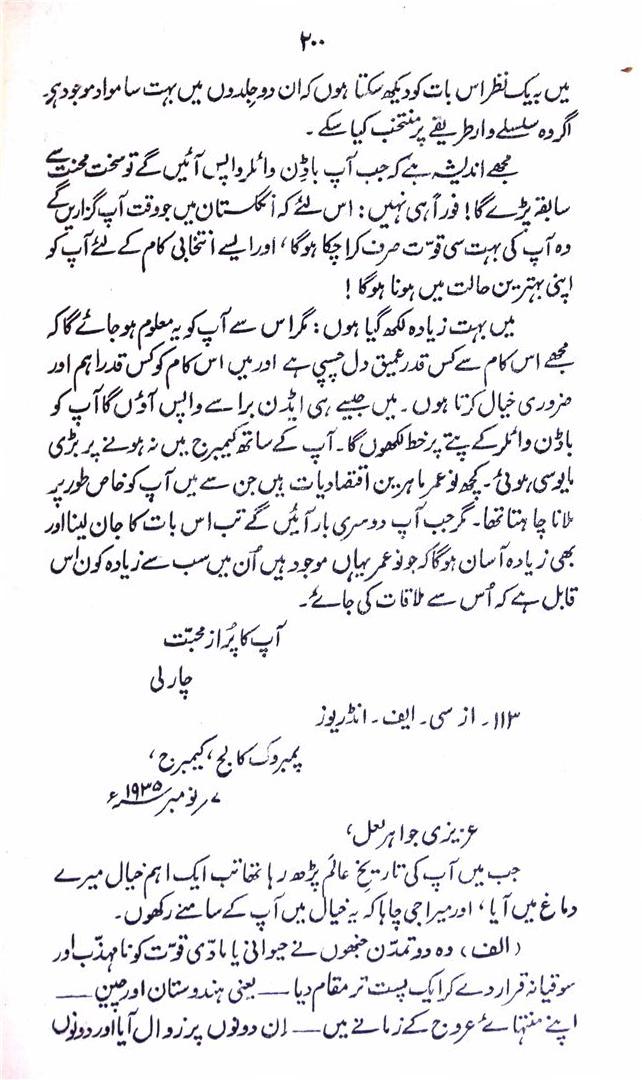 ۲۰۰
میں بہ یک نظر اس بات کو دیکھ سکتا ہوں کہ ان دو جلدوں میں بہت سا مواد موجود ہی۔
اگر وہ سلسلے وار طریقے پر منتخب کیا سکے ۔
مجھے اندیشہ ہے کہ جب آپ باڈن وائلر واپس آئیں گے تو سخت محنت سے
سابقہ پڑے گا! فوراً ہی نہیں: اس لئے کہ انگلستان میں جو وقت آپ گزاریں گے
وہ آپ کی بہت سی قوّت صرف کرا چکا ہوگا، اور ایسے انتخابی کام کے لئے آپ کو
اپنی بہترین حالت میں ہونا ہوگا !
میں بہت زیادہ لکھ گیا ہوں: مگر اس سے آپ کو یہ معلوم ہو جائے گا کہ
مجھے اس کام سے کس قدر عمیق دل چسپی ہے اور میں اس کام کو کس قدر اہم اور
ضروری خیال کرتا ہوں۔ میں جیسے ہی ایڈن برا سے واپس آؤں گا آپ کو
باڈن وائلر کے پتے پر خط لکھوں گا۔ آپ کے ساتھ کیمبرج میں نہ ہونے پر بڑی
مایوسی ہوئی۔ کچھ نو عمر ماہرین اقتصادیات ہیں جن سے میں آپ کو خاص طور پر
ملانا چاہتا تھا۔ مگر جب آپ دوسری بار آئیں گے تب اس بات کا جان لینا اور
بھی زیادہ آسان ہوگا کہ جو نو عمر یہاں موجود ہیں اُن میں سب سے زیادہ کون اس
قابل ہے کہ اُس سے ملاقات کی جائے۔
آپ کا پُر از محبّت
چارلی
۱۱۳۔ از سی۔ ایف۔ انڈریوز
پمبروک کالج، کیمبرج،
۷ر نومبر ۱۹۳۵ء
عزیزی جواہر لعل،
جب میں آپ کی تاریخِ عالم پڑھ رہا تھا تب ایک اہم خیال میرے
دماغ میں آیا، اور میرا جی چاہا کہ یہ خیال میں آپ کے سامنے رکھوں۔
(الف) وہ دو تمدّن جنھوں نے حیوانی یا مادّی قوّت کو نا مہذّب اور
سوقیانہ قرار دے کر ایک پست تر مقام دیا — یعنی ہندوستان اور چین —
اپنے منتہائے عروج کے زمانے میں — اِن دونوں پر زوال آیا اور دونوں